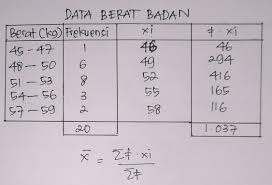 DATA BERAT BADAN
Berat (kg) Frekuensi xi f . xi
45 - 47 1 46 46
48 - 50 6 49 294
51 - 53 8 52 416
54 - 56 3 55 165
57 - 59 2 58 116
20 1.037
x̄ = Σf . xi
Σf